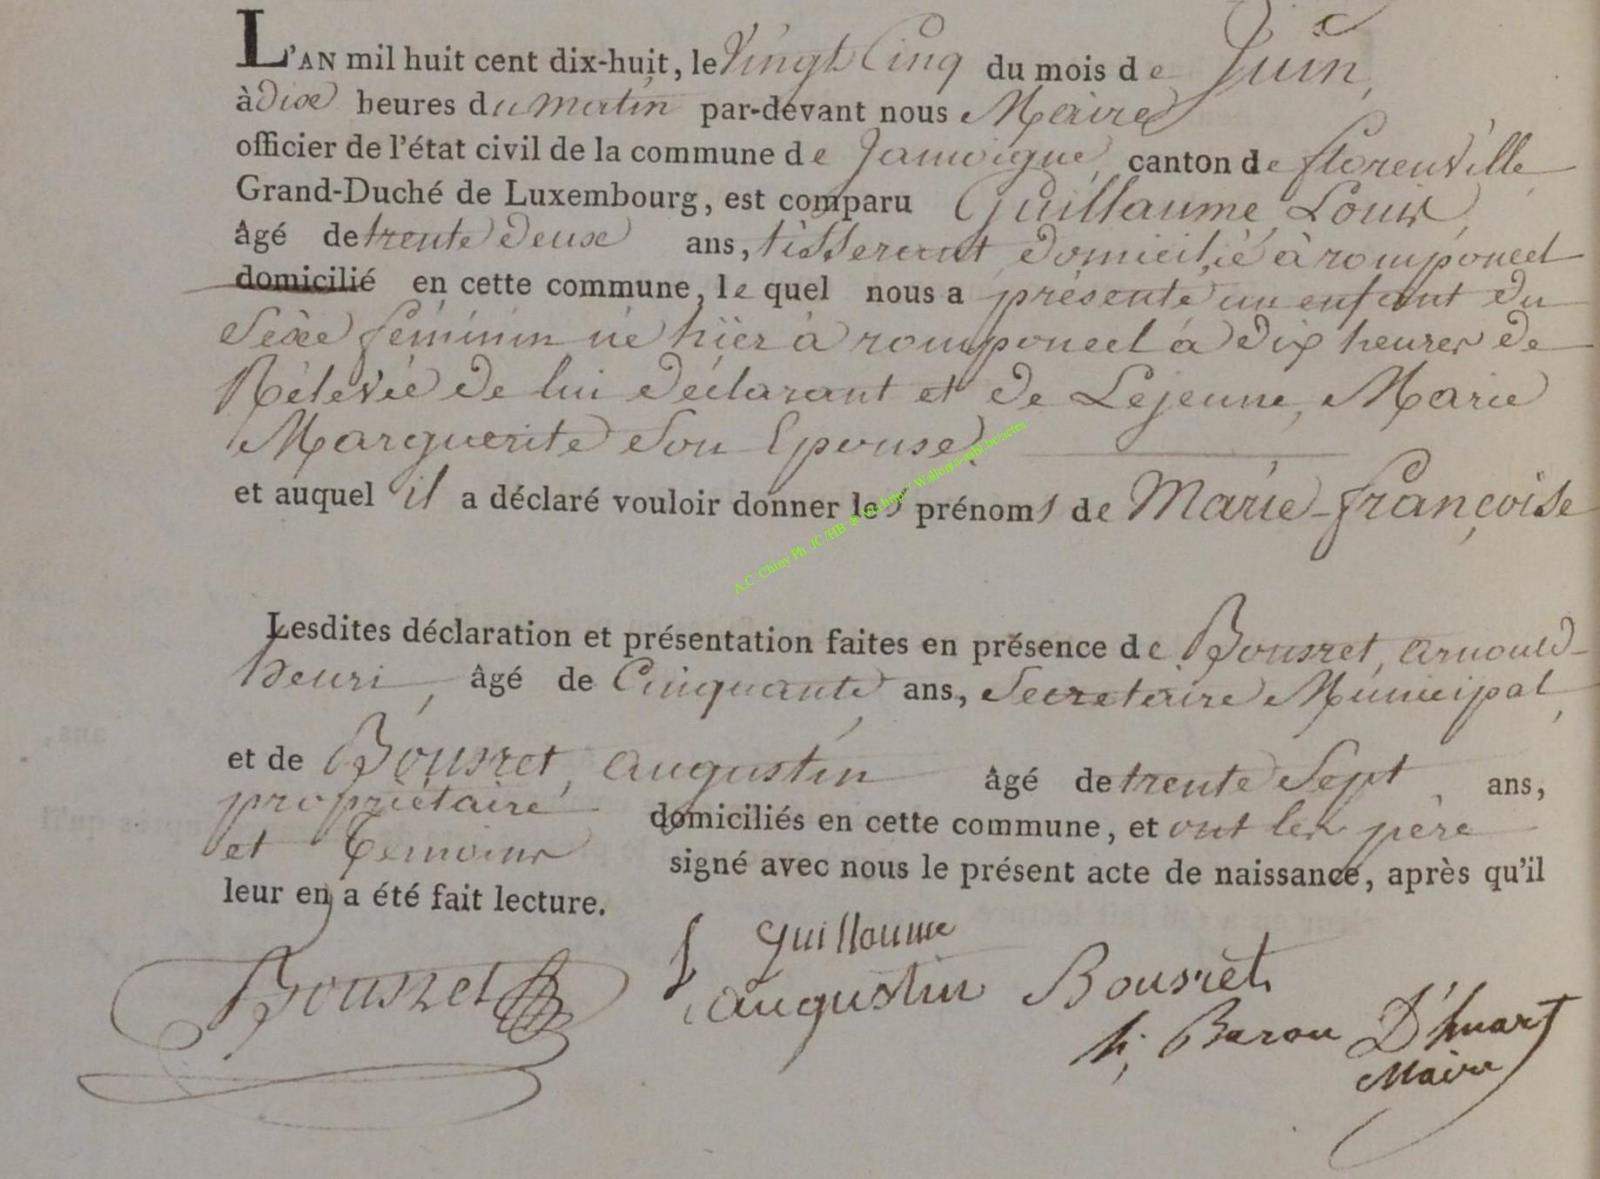 L'AN mil huit cent dix-huit, le Vingt Cinq du mois de Juin,
à dixe heures du matin par-devant nous Maire
officier de l'état civil de la commune de Jamoigne, canton de florenville
Grand-Duché de Luxembourg, est comparu Guillaume, Louis,
âgé de trente deuxe ans, tisserant domicilié à romponcel
domicilié en cette commune, le quel nous a présenté un enfant du
Sexe féminin né hier à romponcel à dix heures de
Rélevée de lui déclarant et de Lejeune, Marie
Marguerite Son Epouse.
et auquel il a déclaré vouloir donner les prénoms de Marie-françoise
Lesdites déclaration et présentation faites en présence de Bousret, arnould-
henri, âgé de Cinquante ans, Secretaire Municipal,
et de Bousret, augustin âgé de trente Sept ans,
propriétaire domiciliés en cette commune, et ont les père
et Temoins signé avec nous le présent acte de naissance, après qu'il
leur en a été fait lecture.
Guillaume
Bousret augustin Bousret
h; Baron D'huart
Maire
A.C. Chiny Ph. JC